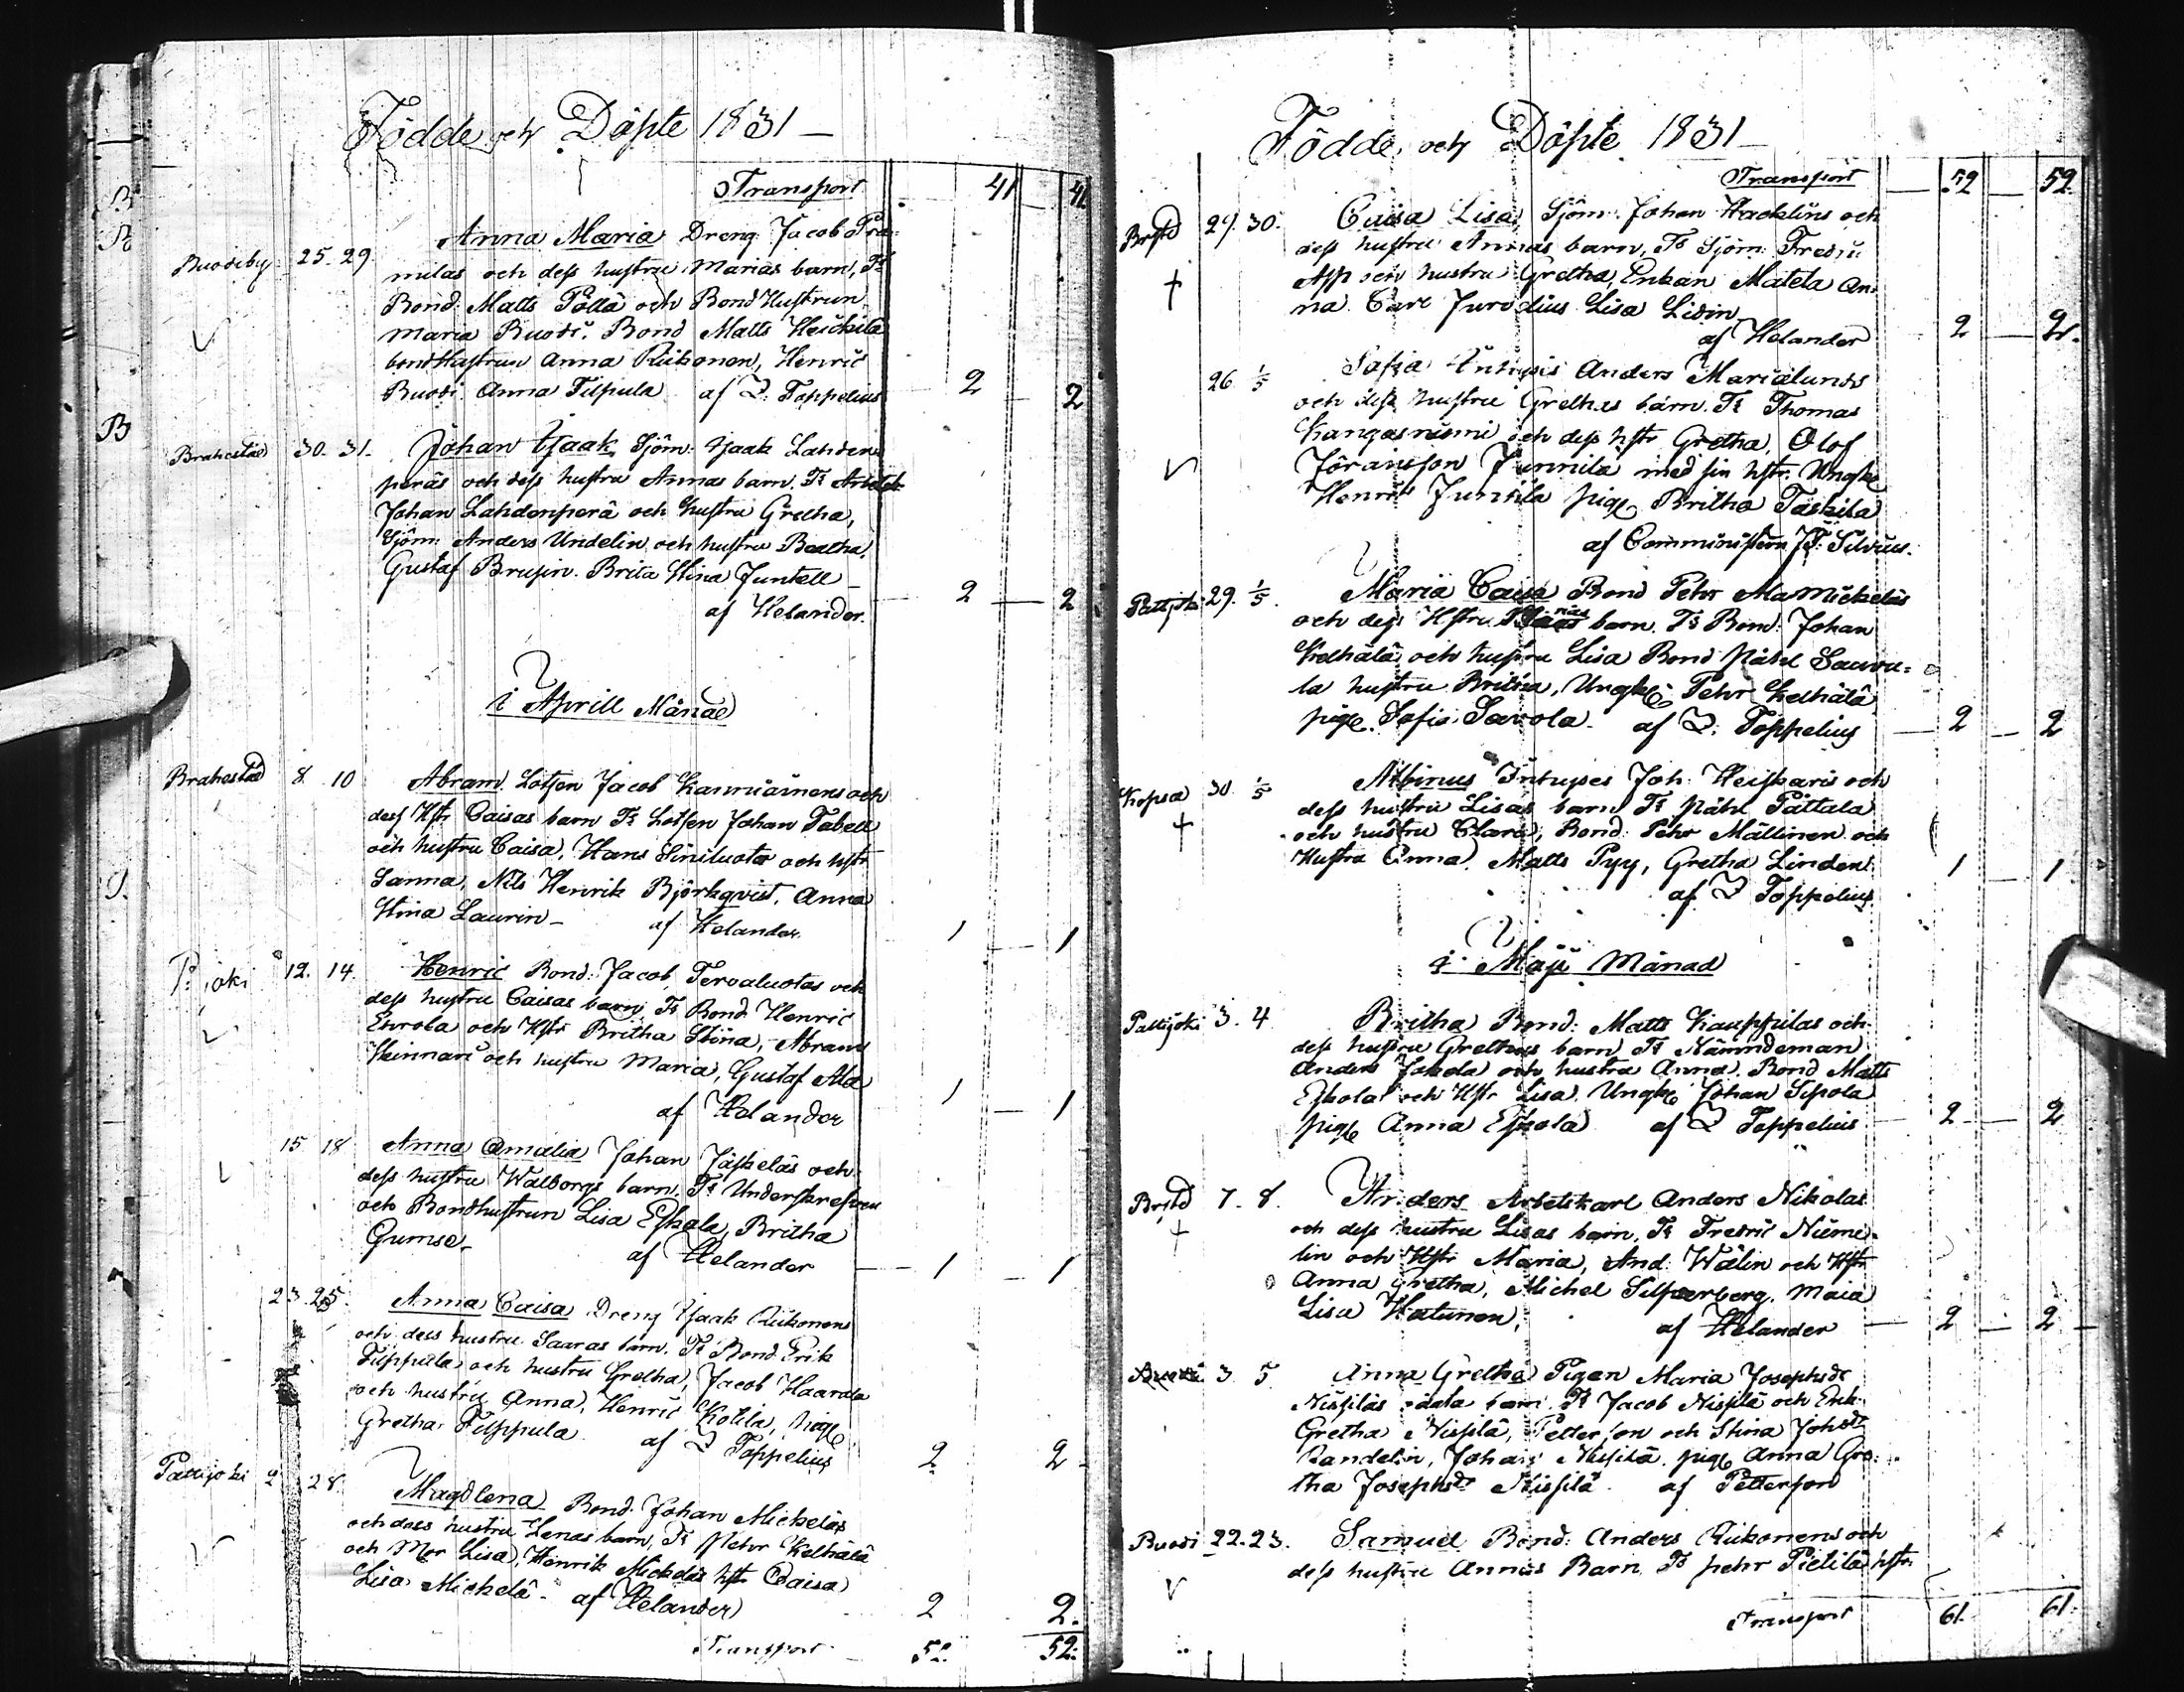 Födde och Döpte 1831
Transport 41 41
Anna Maria Dreng Jacob
Buodeby 25. 29. milas och dess hustru Marias barn, Tt
Bond. Matts Pöllä och Bond Hustrun
Maria Buodi. Bond Matts Heickilä
bondHustrun Anna Riihonen, Henric
Buodi Anna Tilpula af Z. Toppelius 2 2
Brahestad 30. 31. Johan Isaak Sjöm. Isaak Lahden
peräs och dess hustru Annas barn. Tt
Johan Lahdenperä och hustru Gretha,
Sjöm. Anders Undelin och hustru Beatha,
Gustaf Brusin. Brita Stina Juntell
af Helander. 2 2
i Aprill Månad
Brahestad 8 10 Abram Lotsen Jacob och
dess Hstr Caisas barn Tt Lotsen Johan Tabell
och hustru Caisa, Hans Siniluoto och hstr
Sanna, Nils Henrik Björkqvist, Anna
Stina Laurin af Helander 1 1
P:joki 12. 14. Henric Bond: Jacob Tervaluotos och
dess hustru Caisas barn Tt Bond Henric
och Hstr Britha Stina, Abram
Kinnari och hustru Maria, Gustaf Ala
af Helander 1 1
15 18 Anna Amalia Johan Jäskeläs och
dess hustru Walborgs barn. Tt Underskrefven
och Bondhustrun Lisa Eskola, Britha
Gumse af Helander 1 1
23. 25. Anna Caisa Dreng Isaak Riihonens
och dess hustru Saaras barn. Tt Bond Erik
Filppula och hustru Gretha, Jacob Haarala
och hustru Anna, Henric Kotila, pige
Gretha Filppula af Z Toppelius 2 2
Pattijoki 2 28. Magdlena Bond. Johan Mickeläs
och dess hustru Lenas barn, Tt Pehr Kelhälä
och Mor Lisa, Henrik Mickeläs hstr Caisa
Lisa Mickelä af Helander 2 2.
Transport 52 52.
Födde och Döpte 1831
Transport 52 52.
Brstd 29. 30. Caisa Lisa Sjöm. Johan Hacklins och
dess hustru Annas barn, Tt Sjöm: Fredric
Asp och hustru Gretha, Enkan Matela An-
na. Carl Jurvelius Lisa Lidin
af Helander 2 2.
26. 1/5 Safia Inhyses Anders Marialunds
och dess hustru Grethas barn. Tt Thomas
Kangasniemi och dess hstr Gretha, Olof
Jöransson Junnila med sin hstr. Ungk
Henrik Junnila pige Britha Taskila
af Comministern
Pattjoki 29. 1/5. Maria Caisa Bond Pehr AlaMickeläs
och dess Hstru barn. Tt Bond: Johan
Kelhälä och hustru Lisa Bond Påhl Sauvu=
la hustru Britha, Ungk: Pehr Kelhälä
pige. Sofia Savola. af Z. Toppelius 2 2
Kopsa 30. 1/5 Albinus Inhyses Joh. Heiskaris och
dess hustru Lisas barn Tt Påhl Pättala
och hustru Clara, Bond. Pehr Mällinen och
Hustru Anna, Matts Pyy, Gretha Linden.
af Z Toppelius. 1 1
i Maji Månad
Pattijoki 3. 4. Britha Bond: Matts Kauppilas och
dess hustru Grethas barn, Tt Nämndeman
Anders Jokela och hustru Anna. Bond Matts
Eskola och Hstr Lisa. Ungk Johan Sipola
pige Anna Eskola af Z Toppelius 2 2
Brstd 7. 8. Anders Arbetskarl Anders Nikolas
och dess hustru Lisas barn, Tt Fredric Nieme-
lin och Hstr Maria, And: Wälin och Hstr
Anna Gretha, Michel Silfverberg. Maia
Lisa Hatunen, af Helander 2 2
3. 5. Anna Gretha Pigan Maria Josephsdr
Nissiläs barn Tt Jacob Nissilä och Enk.
Gretha Nissilä, Petterson och Stina Johsdr
Randelin, Johan Nissilä. pige Anna Gre-
tha Josephsdr Nissilä. af Petterson
Buodi 22. 23. Samuel Bond: Anders Riihonens och
dess hustru Annas Barn Tt Pehr Pietilä hstr
Transport 61. 61.